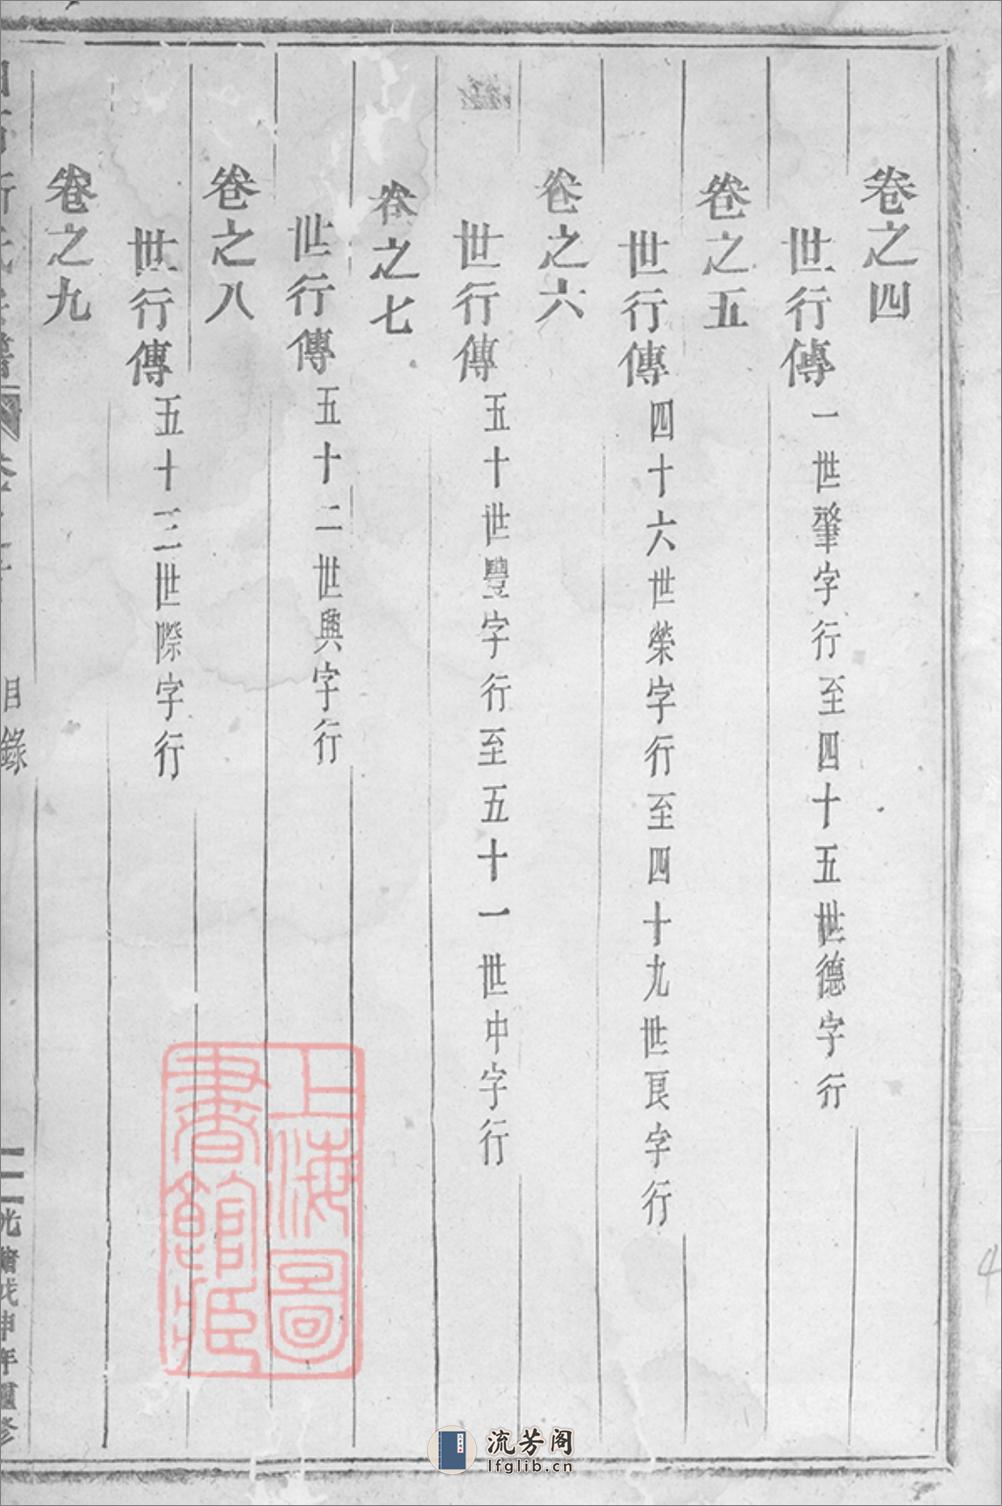 卷之四
世行傳一世肇字行至四十五世德字行
卷之五
世行傳四十六世榮字行至四十九世良字行
卷之六
世行傳五十世豐字行至五十一世中字行
卷之七
世行傳五十二世興字行
卷之八
世行傳五十三世際字行
卷之九
目錄
二
光緒戊申年重修
上海圖書館藏
流芳阁
lfglib.cn